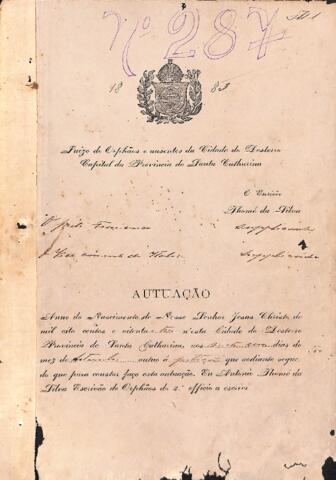 nº 287
18 83
Juizo de Orphãos e ausentes da Cidade do Desterro
Capital da Provincia de Santa Catharina
O Escrivão
Thomé da Silva
O preto Francisco
Supplicante
Supplicado
AUTUAÇÃO
Anno do Nascimento de Nosso Senhor Jesus Christo de
mil oito centos e oitenta e tres n'esta Cidade do Desterro
Provincia de Santa Catharina, aos dias do
mez de autuo a petição que adiante segue,
do que para constar faço esta autuação. Eu Antonio Thomé da
Silva Escrivão de Orphãos do 2º officio a escrevi